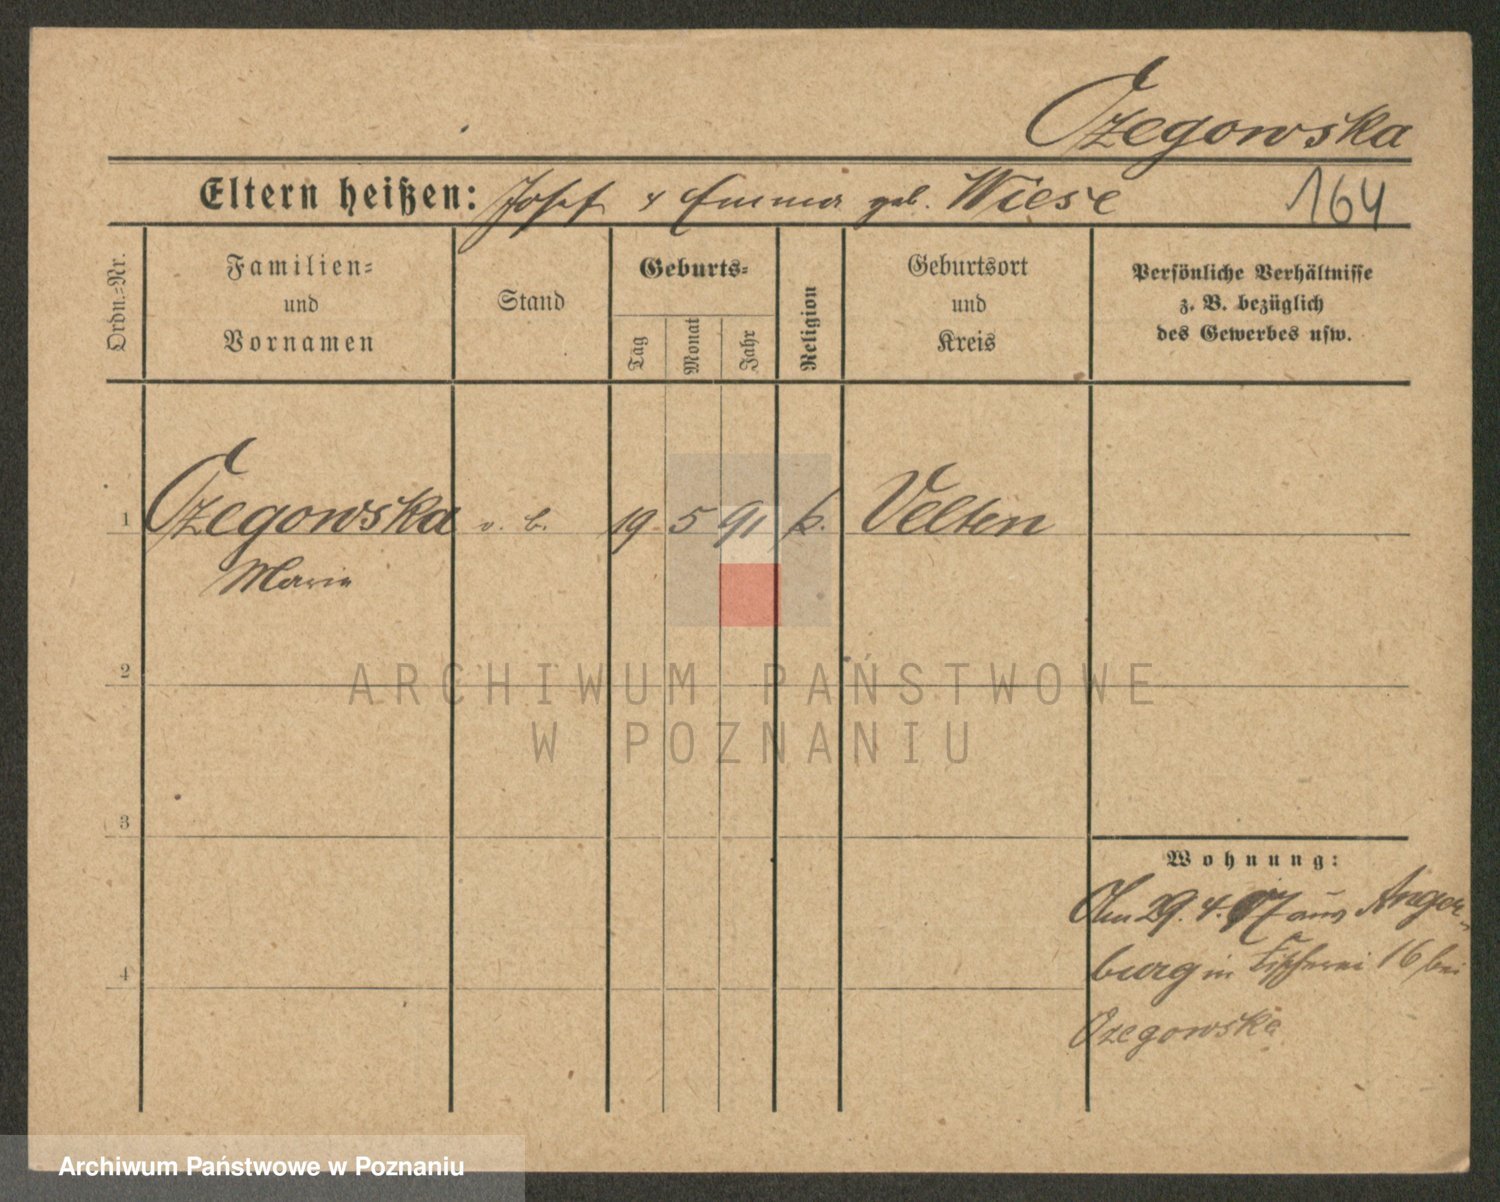 Czegowska
Eltern heißen: Josef & Emma geb. Wiese
164
Ordn.=Nr.
Familien=
und
Vornamen
Stand
Geburts=
Tag
Monat
Jahr
Religion
Geburtsort
und
Kreis
Persönliche Verhältnisse
z. B. bezüglich
des Gewerbes usw.
1
Czegowska o. b. 19 5 91 k. Velten
Marie
2
3
4
Wohnung:
29. 4. 07 aus Anger-
burg in Fischerei 16 bei
Czegowska
ARCHIWUM PAŃSTWOWE
W POZNANIU
Archiwum Państwowe w Poznaniu